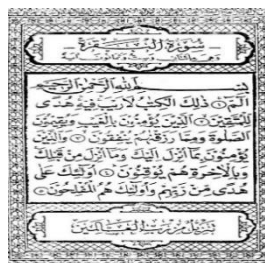 سُورَةُ الْبَقَرَة
بِسْمِ اللهِ الرَّحْمٰنِ الرَّحِيمِ
الٓمٓ ۝ ذٰلِكَ الْكِتٰبُ لَا رَيْبَ فِيهِ هُدًى
لِلْمُتَّقِينَ ۝ الَّذِينَ يُؤْمِنُونَ بِالْغَيْبِ وَيُقِيمُونَ
الصَّلٰوةَ وَمِمَّا رَزَقْنٰهُمْ يُنْفِقُونَ ۝ وَالَّذِينَ
يُؤْمِنُونَ بِمَا أُنْزِلَ إِلَيْكَ وَمَا أُنْزِلَ مِنْ قَبْلِكَ
وَبِالْاٰخِرَةِ هُمْ يُوقِنُونَ ۝ أُولٰئِكَ عَلٰى
هُدًى مِنْ رَبِّهِمْ وَأُولٰئِكَ هُمُ الْمُفْلِحُونَ ۝
تَنْزِيلٌ مِنْ رَبِّ الْعَالَمِينَ